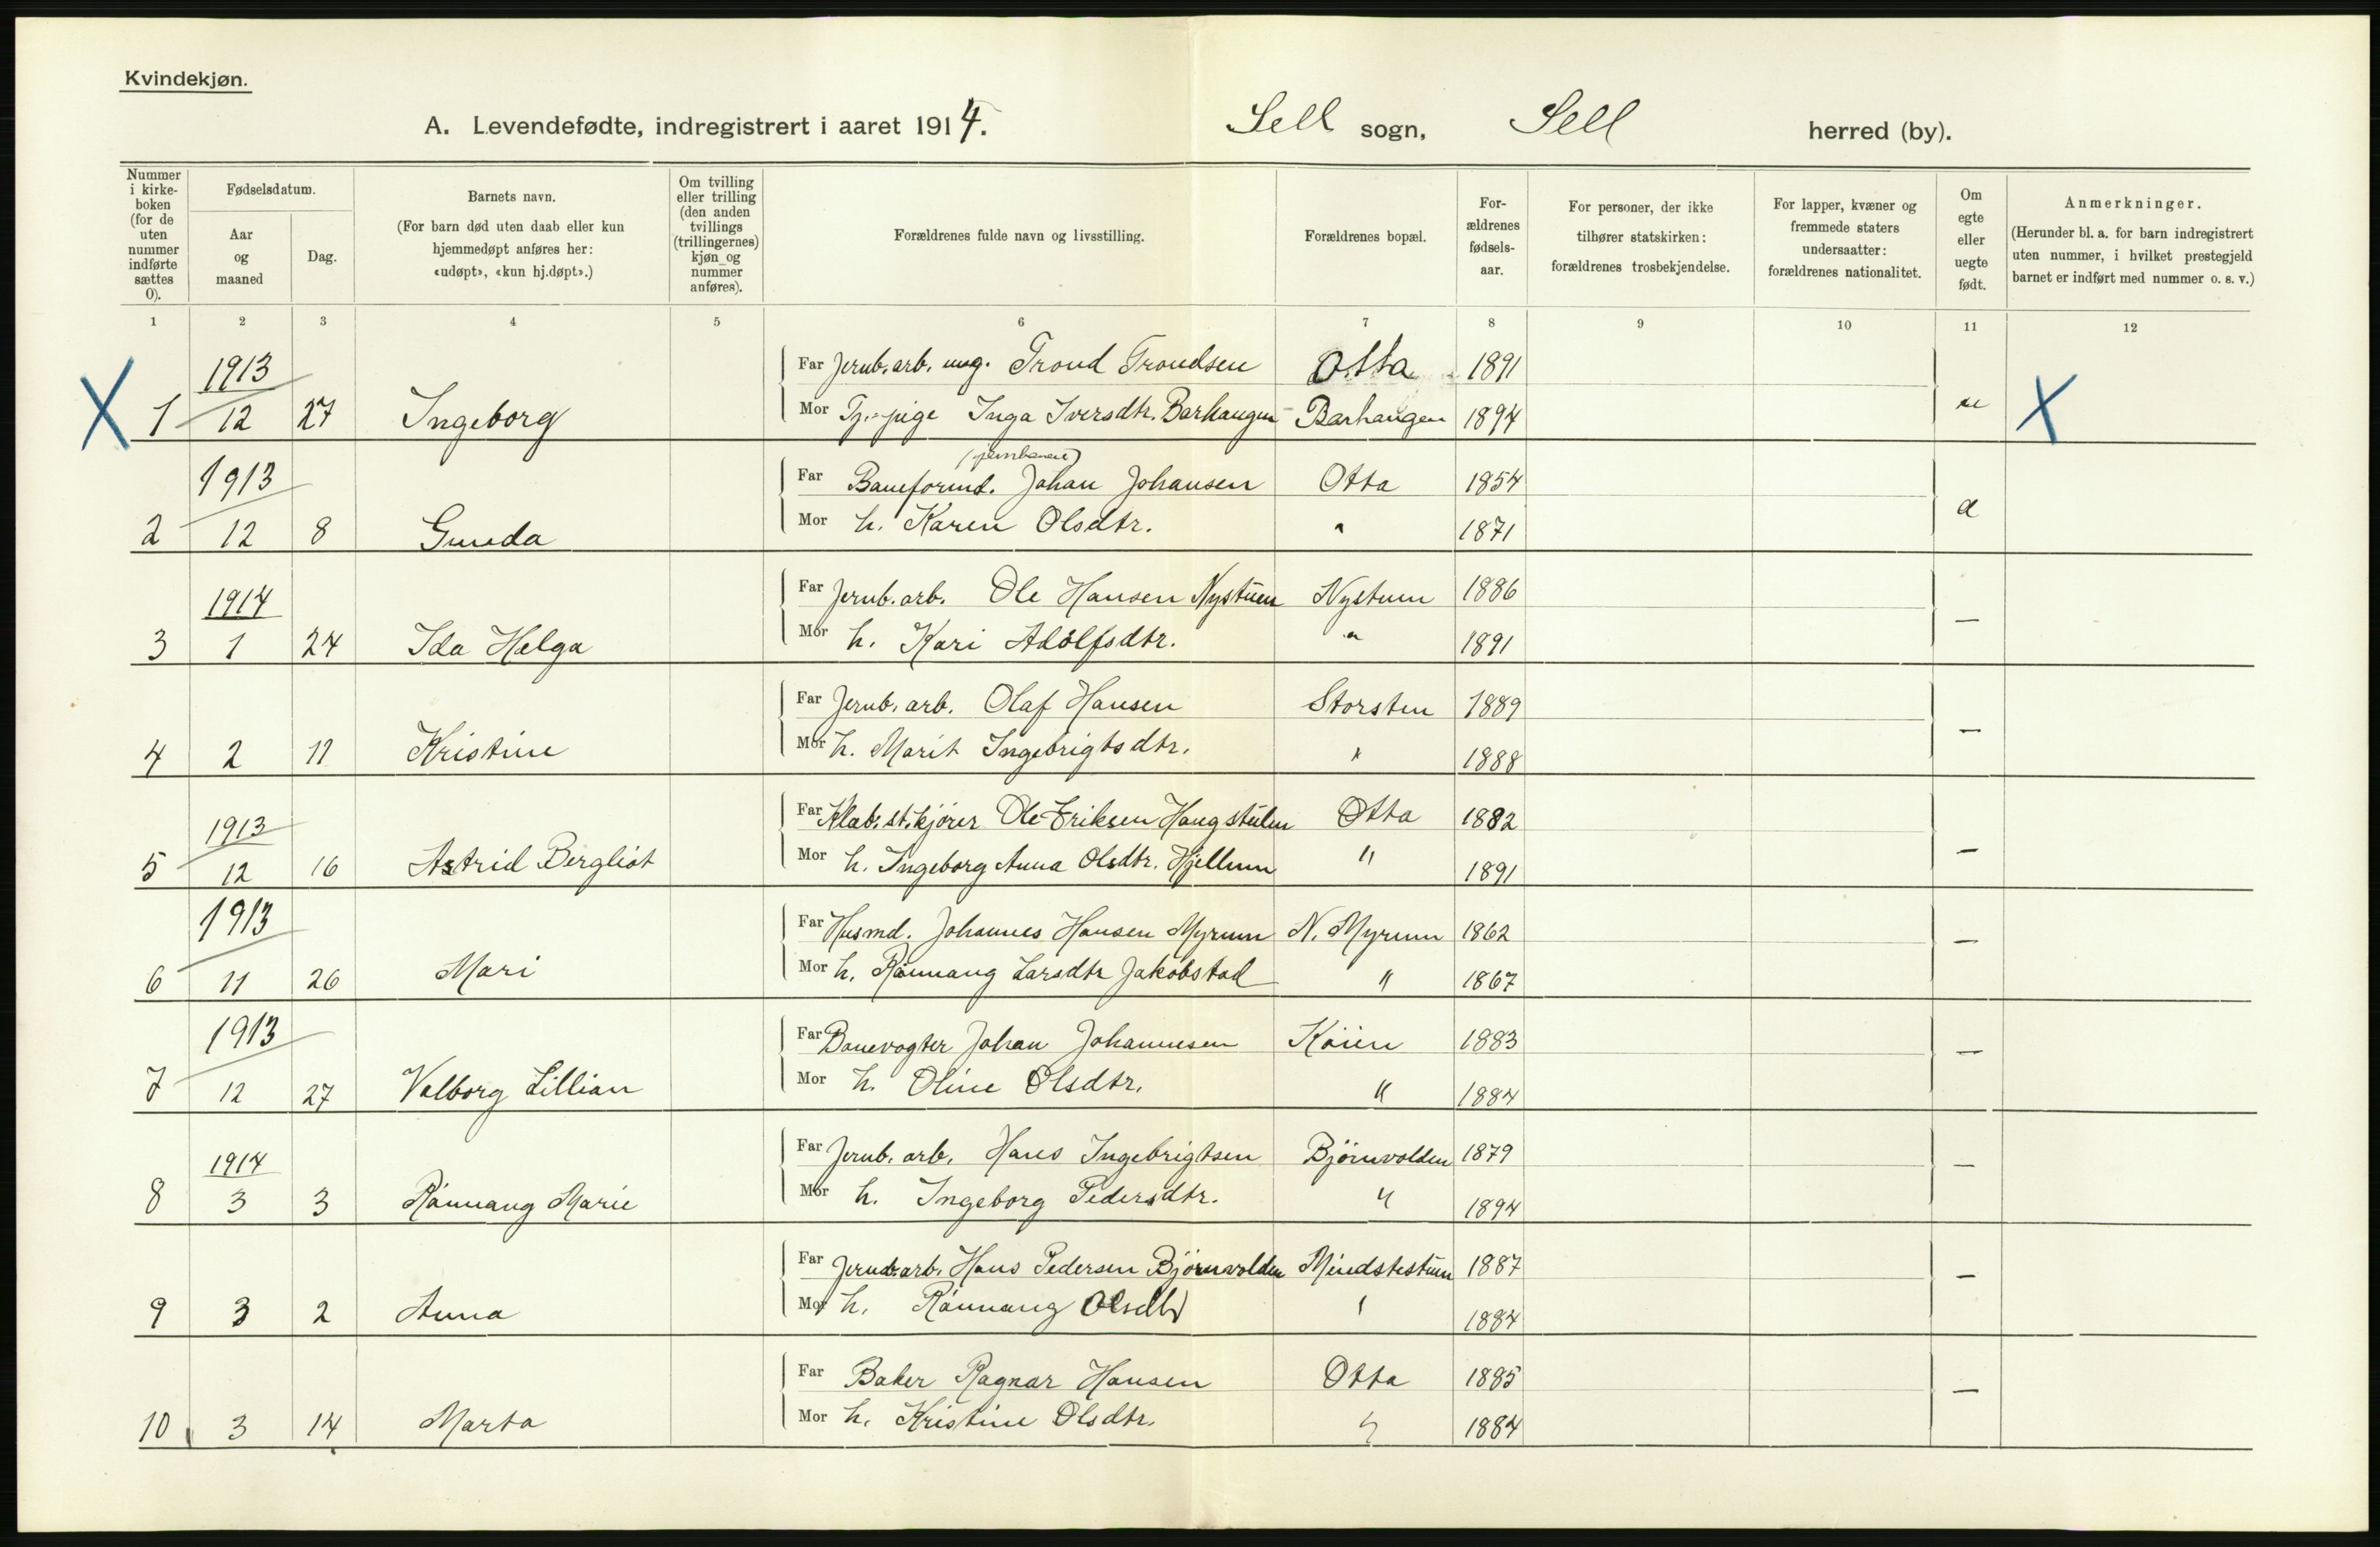 Kvindekjøn.
A. Levendefødte, indregistrert i aaret 1914. Sell sogn, Sell herred (by).
Nummer i kirkeboken (for de uten nummer indførte sættes 0).
Fødselsdatum.
Aar og maaned
Dag.
Barnets navn.
(For barn død uten daab eller kun hjemmedøpt anføres her: «udøpt», «kun hj.døpt».)
Om tvilling eller trilling (den anden tvillings (trillingernes) kjøn og nummer anføres).
Forældrenes fulde navn og livsstilling.
Forældrenes bopæl.
Forældrenes fødselsaar.
For personer, der ikke tilhører statskirken: forældrenes trosbekjendelse.
For lapper, kvæner og fremmede staters undersaatter: forældrenes nationalitet.
Om egte eller uegte født.
Anmerkninger.
(Herunder bl. a. for barn indregistrert uten nummer, i hvilket prestegjeld barnet er indført med nummer o. s. v.)
1 2 3 4 5 6 7 8 9 10 11 12
1913 Far Jernb. arb. ung. Trond Trondsen Otta 1891
X 1 12 27 Ingeborg Mor Tj. pige Inga Iversdtr. Barhaugen Barhaugen 1894 ue X
(jernbanen)
1913 Far Baneformd. Johan Johansen Otta 1854
2 12 8 Gunda Mor h. Karen Olsdtr. " 1871 e
1914 Far Jernb. arb. Ole Hansen Nystuen Nystuen 1886
3 1 24 Ida Helga Mor h. Kari Adolfsdtr. " 1891 —
Far Jernb. arb. Olaf Hansen Storsten 1889
4 2 11 Kristine Mor h. Marit Ingebrigtsdtr. " 1888 —
1913 Far Ole Eriksen Haugstulen Otta 1882
5 12 16 Astrid Bergliot Mor h. Ingeborg Anna Olsdtr. Hjellum " 1891 —
1913 Far Husmd. Johannes Hansen Myrum N. Myrum 1862
6 11 26 Mari Mor h. Rønnaug Larsdtr Jakobstad " 1867 —
1913 Far Banevogter Johan Johannesen Køien 1883
7 12 27 Valborg Lillian Mor h. Oline Olsdtr. " 1884 —
1914 Far Jernb. arb. Hans Ingebrigtsen Bjørnvolden 1879
8 3 3 Rønnaug Marie Mor h. Ingeborg Pedersdtr. " 1894 —
Far Jernb. arb. Hans Pedersen Bjørnvolden Mindstestuen 1887
9 3 2 Anna Mor h. Rønnaug Olsdtr " 1884 —
Far Baker Ragnar Hansen Otta 1885
10 3 14 Marta Mor h. Kristine Olsdtr. " 1884